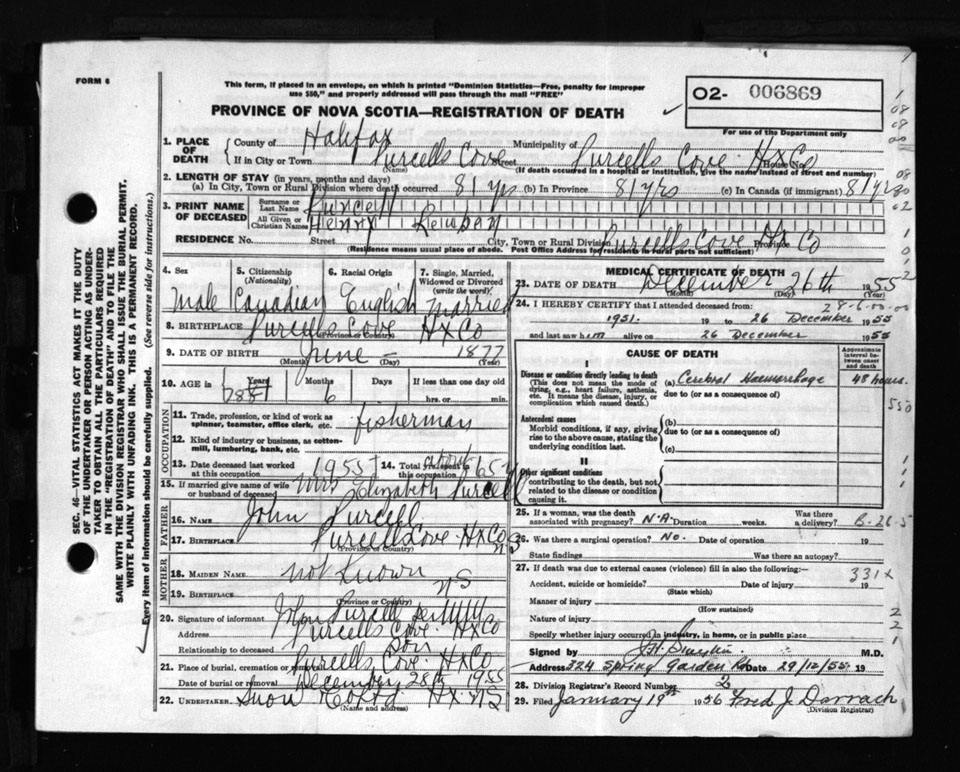 FORM 6
This form, if placed in an envelope, on which is printed "Dominion Statistics—Free, penalty for improper
use $50," and properly addressed will pass through the mail "FREE"
PROVINCE OF NOVA SCOTIA—REGISTRATION OF DEATH
O2- 006869
For use of the Department only
1. PLACE OF DEATH
County of Halifax Municipality of
If in City or Town Purcells Cove Street Purcells Cove Hx Co House No.
(Name) (If death occurred in a hospital or institution, give the name instead of street and number)
2. LENGTH OF STAY (in years, months and days)
(a) In City, Town or Rural Division where death occurred 81 yrs (b) In Province 81 yrs (c) In Canada (if immigrant) 81 yrs
3. PRINT NAME OF DECEASED
Surname or Last Name Purcell
All Given or Christian Names Henry
RESIDENCE No. Street City, Town or Rural Division Purcells Cove Hx Co Province
(Residence means usual place of abode. Post Office Address for residents in rural parts not sufficient)
4. Sex 5. Citizenship (Nationality) 6. Racial Origin 7. Single, Married, Widowed or Divorced (write the word)
male Canadian English married
8. BIRTHPLACE Purcells Cove Hx Co
9. DATE OF BIRTH June – 1877
(Month) (Day) (Year)
10. AGE in Years Months Days If less than one day old
6 hrs. or min.
OCCUPATION
11. Trade, profession, or kind of work as spinner, teamster, office clerk, etc. fisherman
12. Kind of industry or business, as cotton-mill, lumbering, bank, etc.
13. Date deceased last worked at this occupation 1955 14. Total years at this occupation about 65 yrs
15. If married give name of wife or husband of deceased Mrs Elizabeth Purcell
FATHER
16. NAME John Purcell
17. BIRTHPLACE Purcells Cove Hx Co NS
(Province or Country)
MOTHER
18. MAIDEN NAME not known
19. BIRTHPLACE NS
(Province or Country)
20. Signature of informant John Purcell
Address Purcells Cove Hx Co
Relationship to deceased son
21. Place of burial, cremation or removal Purcells Cove Hx Co
Date of burial or removal December 28th 1955
22. UNDERTAKER Snow Hx NS
(Name and address)
MEDICAL CERTIFICATE OF DEATH
23. DATE OF DEATH December 26th 1955
(Month) (Day) (Year)
24. I HEREBY CERTIFY that I attended deceased from:
1951. 19 to 26 December 1955
and last saw him alive on 26 December 1955
CAUSE OF DEATH
Approximate interval between onset and death
I
Disease or condition directly leading to death
(This does not mean the mode of dying, e.g., heart failure, asthenia, etc. It means the disease, injury, or complication which caused death.)
(a) Cerebral Haemorrhage 48 hours.
due to (or as a consequence of)
Antecedent causes
Morbid conditions, if any, giving rise to the above cause, stating the underlying condition last.
(b)
due to (or as a consequence of)
(c)
II
Other significant conditions
contributing to the death, but not related to the disease or condition causing it.
25. If a woman, was the death associated with pregnancy? N.A. Duration weeks. Was there a delivery?
26. Was there a surgical operation? No. Date of operation 19
State findings Was there an autopsy?
27. If death was due to external causes (violence) fill in also the following:—
Accident, suicide or homicide? Date of injury 19
(State which)
Manner of injury
(How sustained)
Nature of injury
Specify whether injury occurred in industry, in home, or in public place
Signed by M.D.
Address 324 Spring Garden Rd Date 29/12/55 19
28. Division Registrar's Record Number 2
29. Filed January 19th 1956 Fred J Darrach
(Division Registrar)
331x
550
SEC. 46—VITAL STATISTICS ACT MAKES IT THE DUTY
OF THE UNDERTAKER OR PERSON ACTING AS UNDER-
TAKER TO OBTAIN ALL THE PARTICULARS REQUIRED
IN THE "REGISTRATION OF DEATH" AND TO FILE THE
SAME WITH THE DIVISION REGISTRAR WHO SHALL ISSUE THE BURIAL PERMIT.
WRITE PLAINLY WITH UNFADING INK. THIS IS A PERMANENT RECORD.
Every item of information should be carefully supplied. (See reverse side for instructions.)